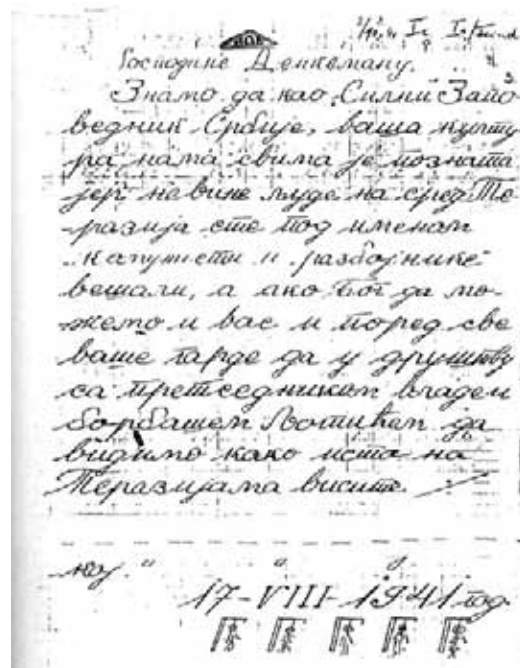 Господине Денкеману.
Знамо да као „Силни Запо
ведник Србије, ваша култу
ра нама свима је позната
јер невине људе на сред Те
разија сте под именом
„капунисти и разбојнике“
вешали, а ако Бог да мо-
жемо и вас и поред све
ваше гарде да у друштву
са претседником владем
борбашем Љотићем да
видимо како иста на
Теразијама висите.
17-VIII-1941 год